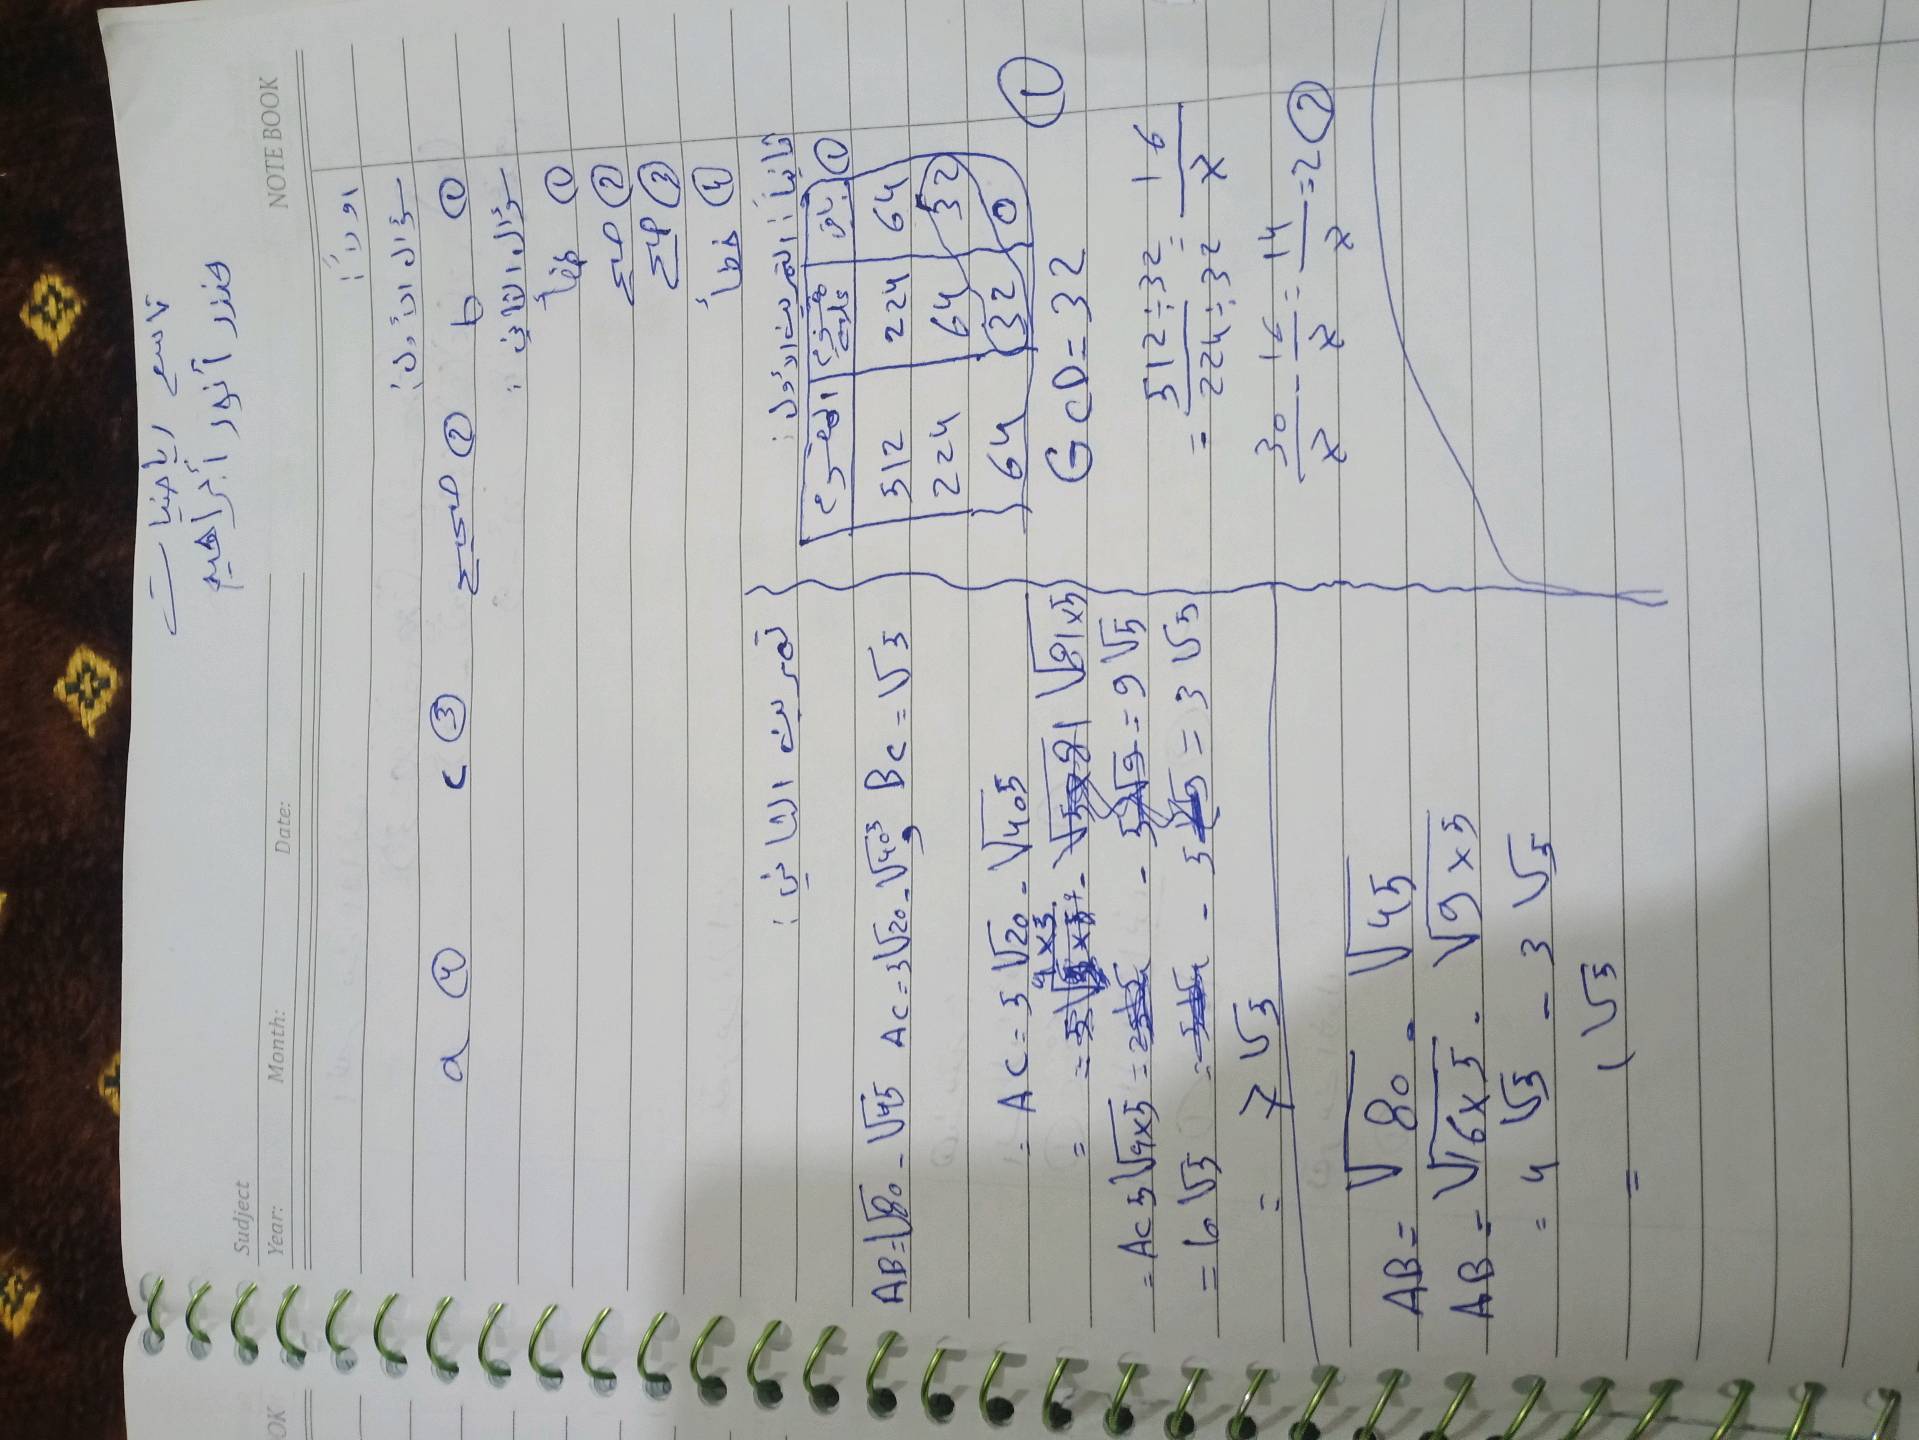 تاسع رياضيات
منذر أنور أبراهيم
NOTE BOOK
Sudject
Year: Month: Date:
اولاً:
سؤال الأول:
① b ② صحيح ③ c ④ a
سؤال الثاني:
① خطأ
② صح
③ صح
④ خطأ
ثانياً: التمرين الأول:
①
باقي
512 224 64
224 64 32
64 32 0
GCD = 32 ①
= 512÷32 / 224÷32 = 16/7
30/7 - 16/7 = 14/7 = 2 ②
تمرين الثاني:
AB=√80 - √45 AC = 3√20 - √405 , BC = √5
= AC = 5√20 - √405
√81×5
= AC 5√4×5 = 9√5
= 6√5 = 3√5
= 7√5
AB = √80 - √45
AB = √16×5 - √9×5
= 4√5 - 3√5
= 1√5
OK